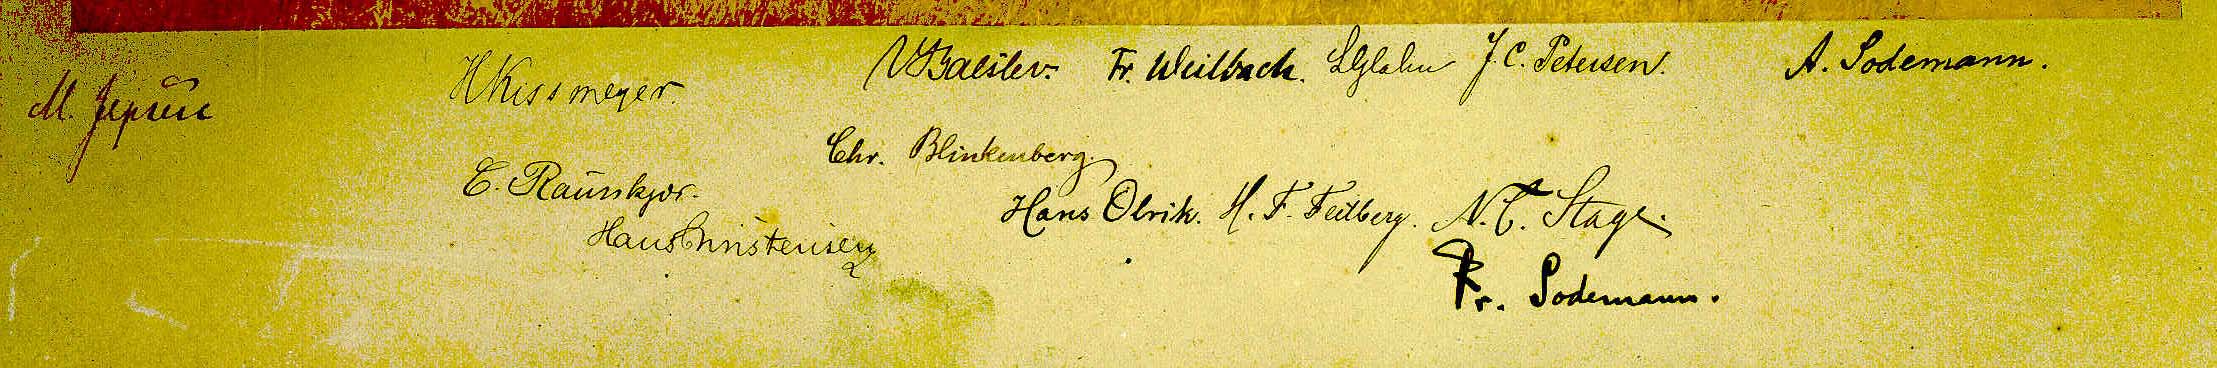 M. Jepsen
H Kissmeyer.
V Balslev. Fr. Weilbach. J. C. Petersen. A. Sodemann.
Chr. Blinkenberg.
C. Raunkjær.
Hans Olrik. H. F. Feilberg. N. C. Stage.
Hans Christensen
Fr. Sodemann.